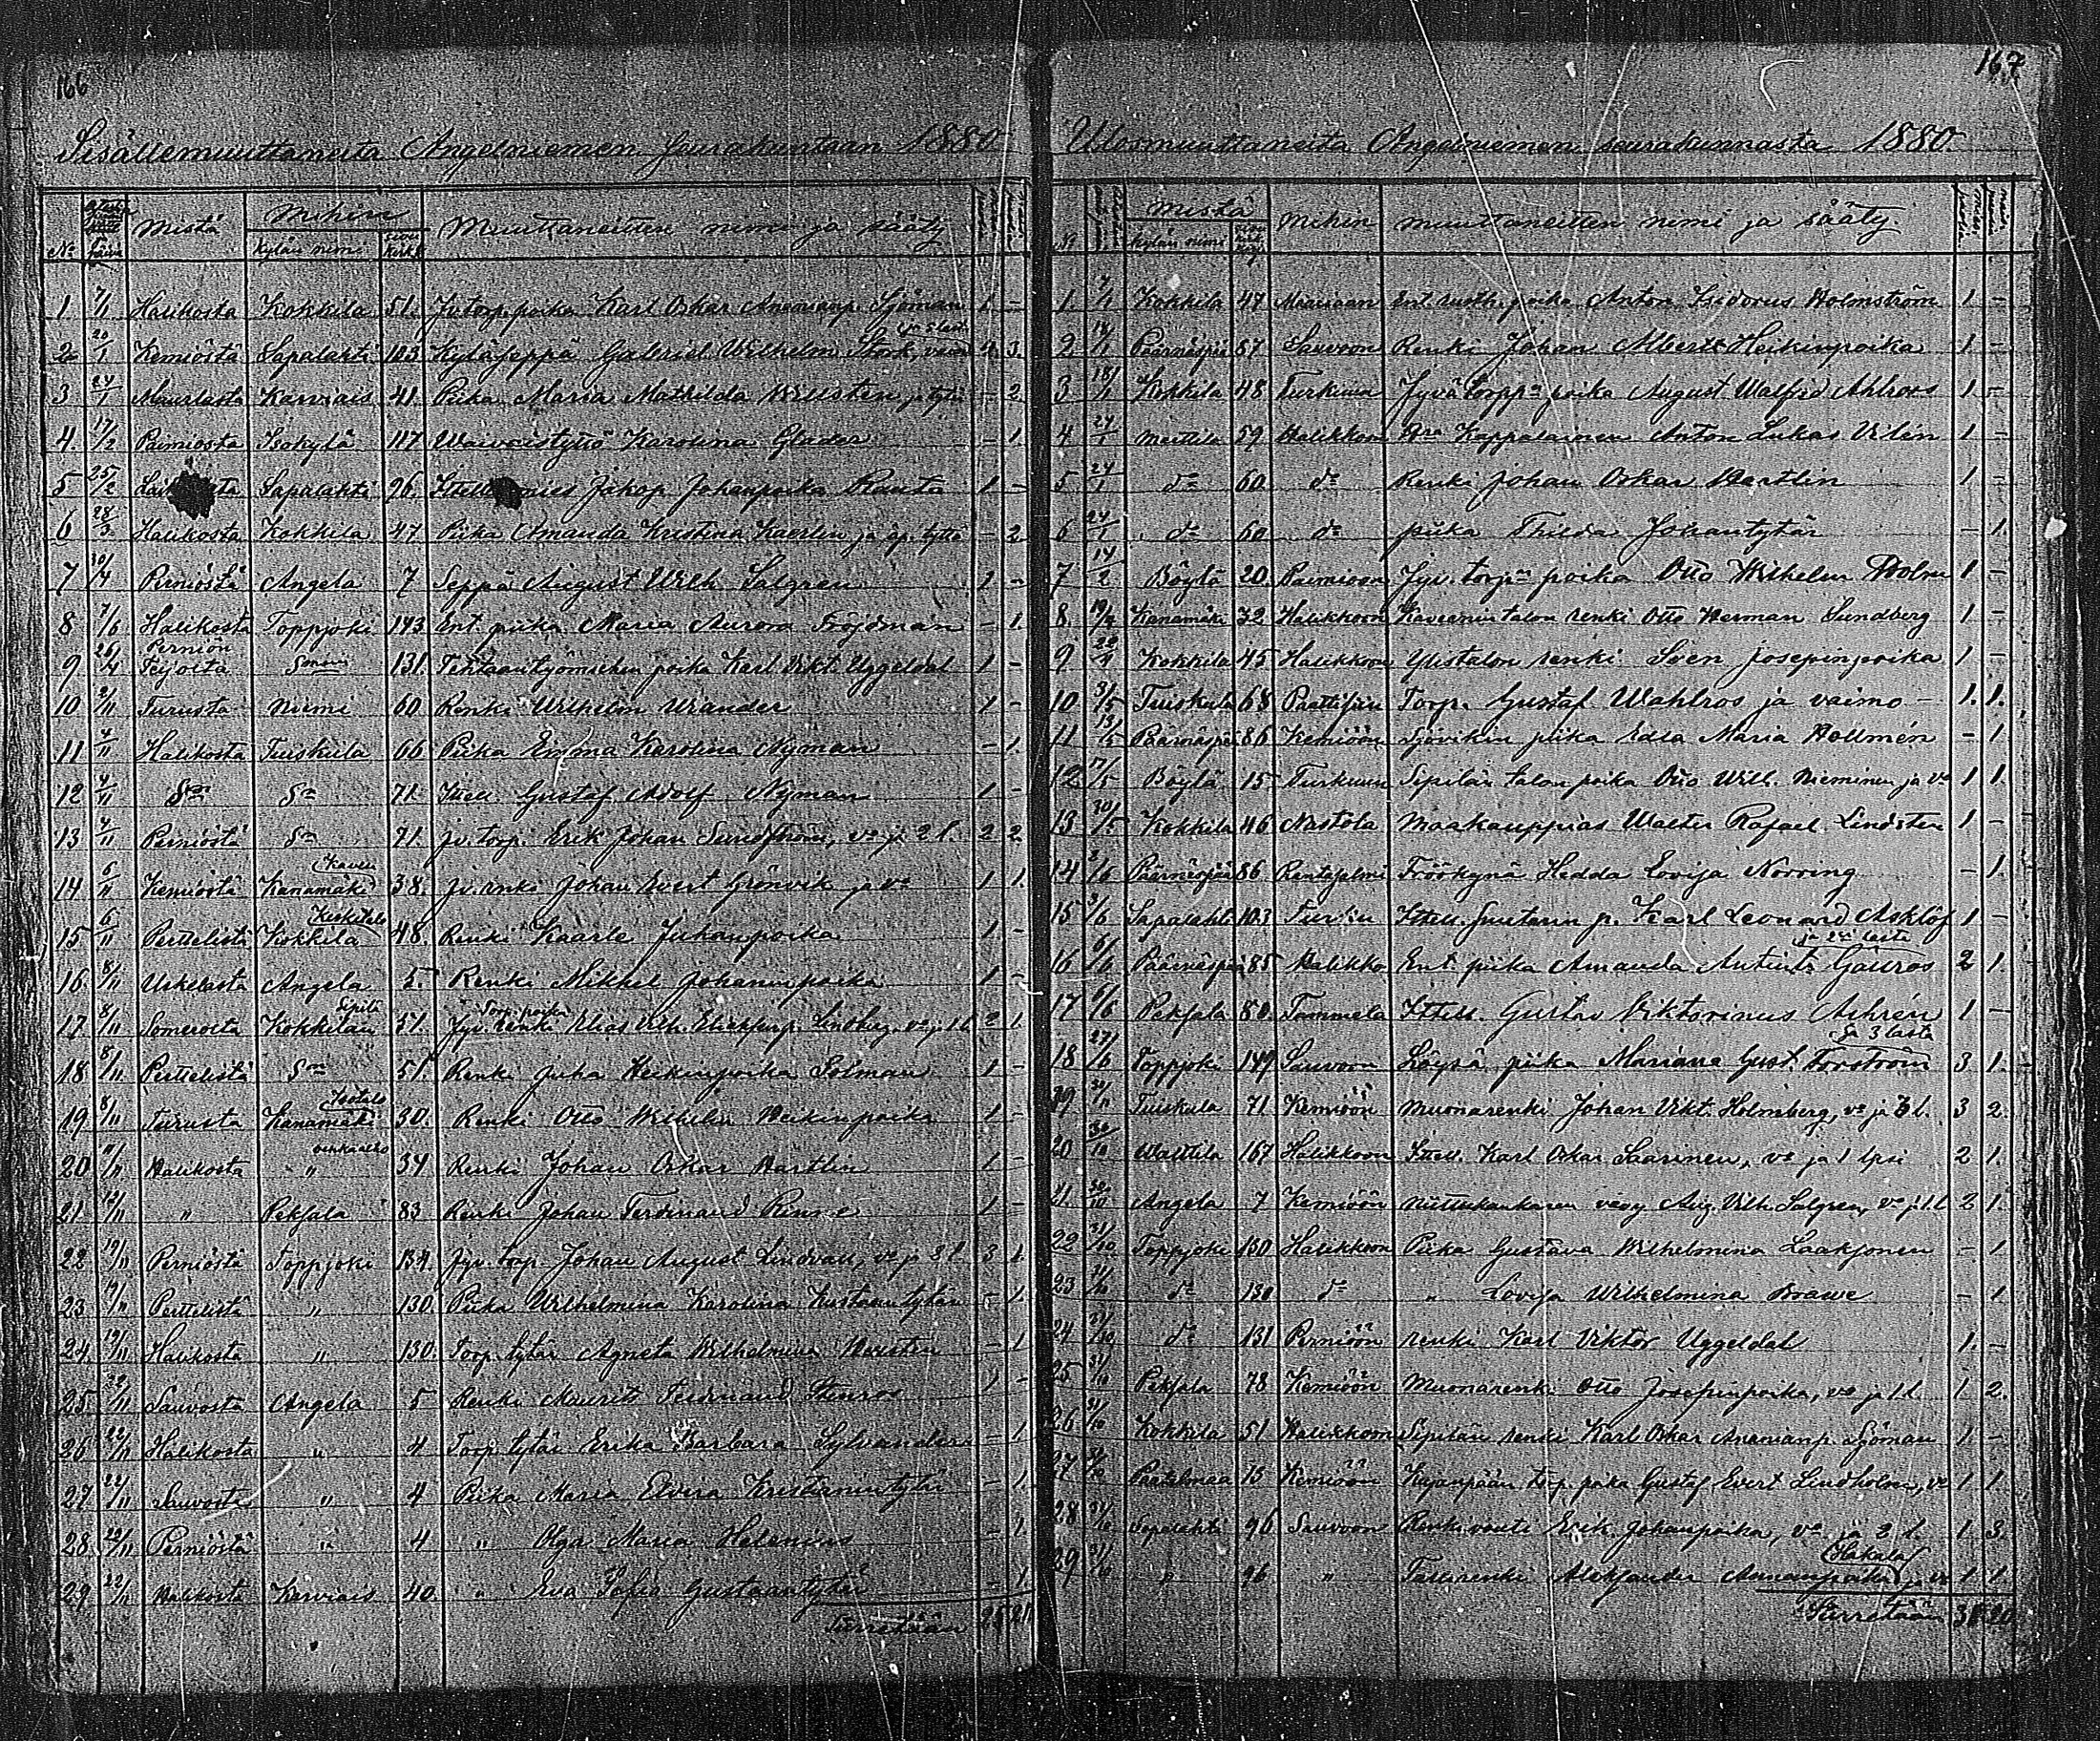 166
Sisällemuuttaneita Angelniemen seurakuntaan 1880
No päivä Mistä Mihin Muuttaneitten nimi ja sääty
kylän nimi
1 7/1 Halikosta Kokkila 51. Jv. torp. poika Karl Oskar Ananianp. Sjöman 1 -
2 20/1 Kemiöstä Sapalahti 103 Kyläseppä Gabriel Wilhelm Stark, vaimo 4 3
3 24/1 Maariasta Karviais 41. Piika Maria Mathilda Willstén ja tytär - 2
4. 17/2 Paimiosta Isokylä 117 Waivaistyttö Karolina Glader - 1.
5 25/2 Sapalahti 96. Jakop Johanpoika Ranta 1 -
6 28/3 Halikosta Kokkila 47. Piika Amanda Kristina Kaerlin ja äp. tyttö - 2
7 30/4 Perniöstä Angela 7 Seppä August Wilh Salgren 1 -
8 7/6 Halikosta Toppjoki 143 Ent. piika Maria Aurora Fröjdman - 1.
Pernion
9 26/4 Teijolta 131. Tehtaantyömiehen poika Karl Vikt. Uggeldal 1 -
10 2/11 Turusta Niemi 60 Renki Wilhelm Wiander 1 -
11 4/11 Halikosta Tuiskula 66 Piika Emma Karolina Nyman - 1.
12 4/11 d:o d:o 71. Itsell. Gustaf Adolf Nyman 1 -
13 4/11 Perniöstä d:o 71. jv. torp. Erik Johan Sundström, vo ja 2 l. 2 2
14 6/11 Kemiöstä Kanamäki 38. Jv. renki Johan Evert Grönvik ja vo 1 1.
Keskitalo
15 6/11 Perttelistä Kokkila 48. Renki Kaarle Juhanpoika 1 -
16. 8/11 Uskelasta Angela 5. Renki Mikkel Johaninpoika 1 -
Sipilä Torp. poika
17. 8/11 Somerosta Kokkilan 51. Jyv. renki Elias Vilh. Lindberg, vo ja 1 l. 2 1.
18 8/11 Perttelistä d:o 51. Renki Juha Heikinpoika Solman 1 -
Isotalo
19. 8/11 Turusta Kanamäki 30. Renki Otto Wilhelm Heikinpoika 1 -
20 11/11 Halikosta " 34 Renki Johan Oskar Hartlin 1 -
21. 12/11 " Pekjala 83 Renki Johan Ferdinand Rinne 1 -
22 19/11 Perniöstä Toppjoki 134. Jyv. torp. Johan August Lindvall, vo ja 2 l. 3 1.
23. 19/11 Perttelistä " 130. Piika Wilhelmina Karolina Kustaantytär - 1.
24. 19/11 Halikosta " 130. Torp. tytär Agneta Wilhelmina - 1
25. 22/11 Sauvosta Angela 5 Renki Maurits Ferdinand Stenros 1 -
26 22/11 Halikosta " 4 Torp. tytär Erika Barbara Sylvander - 1
27 22/11 Sauvosta " 4 Piika Maria Elvira Kristianintytär - 1.
28. 22/11 Perniöstä " 4 " Olga Maria Helenius - 1.
29 22/11 Halikosta Karviais 40. " Eva Sofia Gustaantytär - 1
Siirretään 25 21.
167
Ulosmuuttaneita Angelniemen seurakunnasta 1880.
No Mistä Mihin muuttaneitten nimi ja sääty
kylän nimi
1. 7/1 Kokkila 47 Maariaan Ent. ruoth. poika Anton Isidorus Holmström 1 -
2 18/1 Päärnäspää 87 Sauvoon Renki Johan Albert Heikinpoika 1 -
3 18/1 Kokkila 48 Turkuun Jyvä torppn poika August Walfrid Ahlroos 1 -
4 24/1 Marttila 59 Halikkoon Kappalainen Anton Lukas Vilén 1 -
5 24/1 d:o 60 d:o Renki Johan Oskar Hartlin 1 -
6 24/1 d:o 60 d:o piika Thilda Johantytär - 1.
7 14/2 Böylä 20. Paimioon Jyv. torpn poika Otto Wilhelm Holm 1 -
8. 19/4 Kanamäki 32 Halikkoon talon renki Otto Herman Sundberg 1 -
9 22/4 Kokkila 45 Halikkoon Ylistalon renki Sven Josepinpoika 1 -
10 3/5 Tuiskula 68 Paattisiin Torp. Gustaf Wahlros ja vaimo - 1. 1.
11 13/5 Päärnäspää 86 Kemiöön Sjövikin piika Edla Maria Hollmén - 1
12 17/5 Böylä 15 Turkuun Sipilän talon poika Otto Wilh. Nieminen ja vo 1 1.
13 30/5 Kokkila 46 Nastola Maakauppias Walter Rafael Lindstén 1 -
14 2/6 Päärnäspää 86 Rantasalmi Fröökynä Hedda Lovisa Norring - 1.
15 3/6 Sapalahti 103 Turku Itsell. Suutarin p. Karl Leonard Asklöf 1 -
ja 2:si lasta
16 6/6 Päärnäspää 85 Halikko Ent. piika Amanda Gauros 2 1.
17 6/6 Pekjala 80. Tammela Itsell. Gustav Viktorinus Ahrén 1 -
ja 3 lasta
18 27/6 Toppjoki 147 Sauvoon Löysä piika Mariana Gust. Forström 3 1.
19 Tuiskula 71 Kemiöön Muonarenki Johan Vikt. Holmberg, vo ja 3 l. 3 2.
20 30/10 Walttila 167 Halikkoon Itsell. Karl Oskar Saarinen, vo ja 1 lpsi 2 1.
21. 30/10 Angela 7 Kemiöön vävy Aug. Vilh. Salgren, vo ja 1 l. 2 1.
22 31/10 Toppjoki 130 Halikkoon Piika Gustava Wilhelmina Laaksonen - 1
23 31/10 d:o 130 d:o " Lovisa Wilhelmina Brawe - 1
24 31/10 d:o 131 Perniöön renki Karl Viktor Uggeldal 1. -
25 31/10 Pekjala 78 Kemiöön Muonarenki Otto Josefinpoika, vo ja 1 l. 1 2.
26 31/10 Kokkila 51 Halikkoon Sipilän renki Karl Oskar Ananianp. Sjöman 1 -
27 31/10 75 Kemiöön torp. poika Gustaf Evert Lindholm, vo 1 1
28 31/10 Sapalahti 96 Sauvoon Renki vouti Erik Johanpoika, vo ja 2 l. 1 3.
Hakala
29 31/10 " 96 " renki Aleksander ja vo 1 1.
Siirretään 31 20